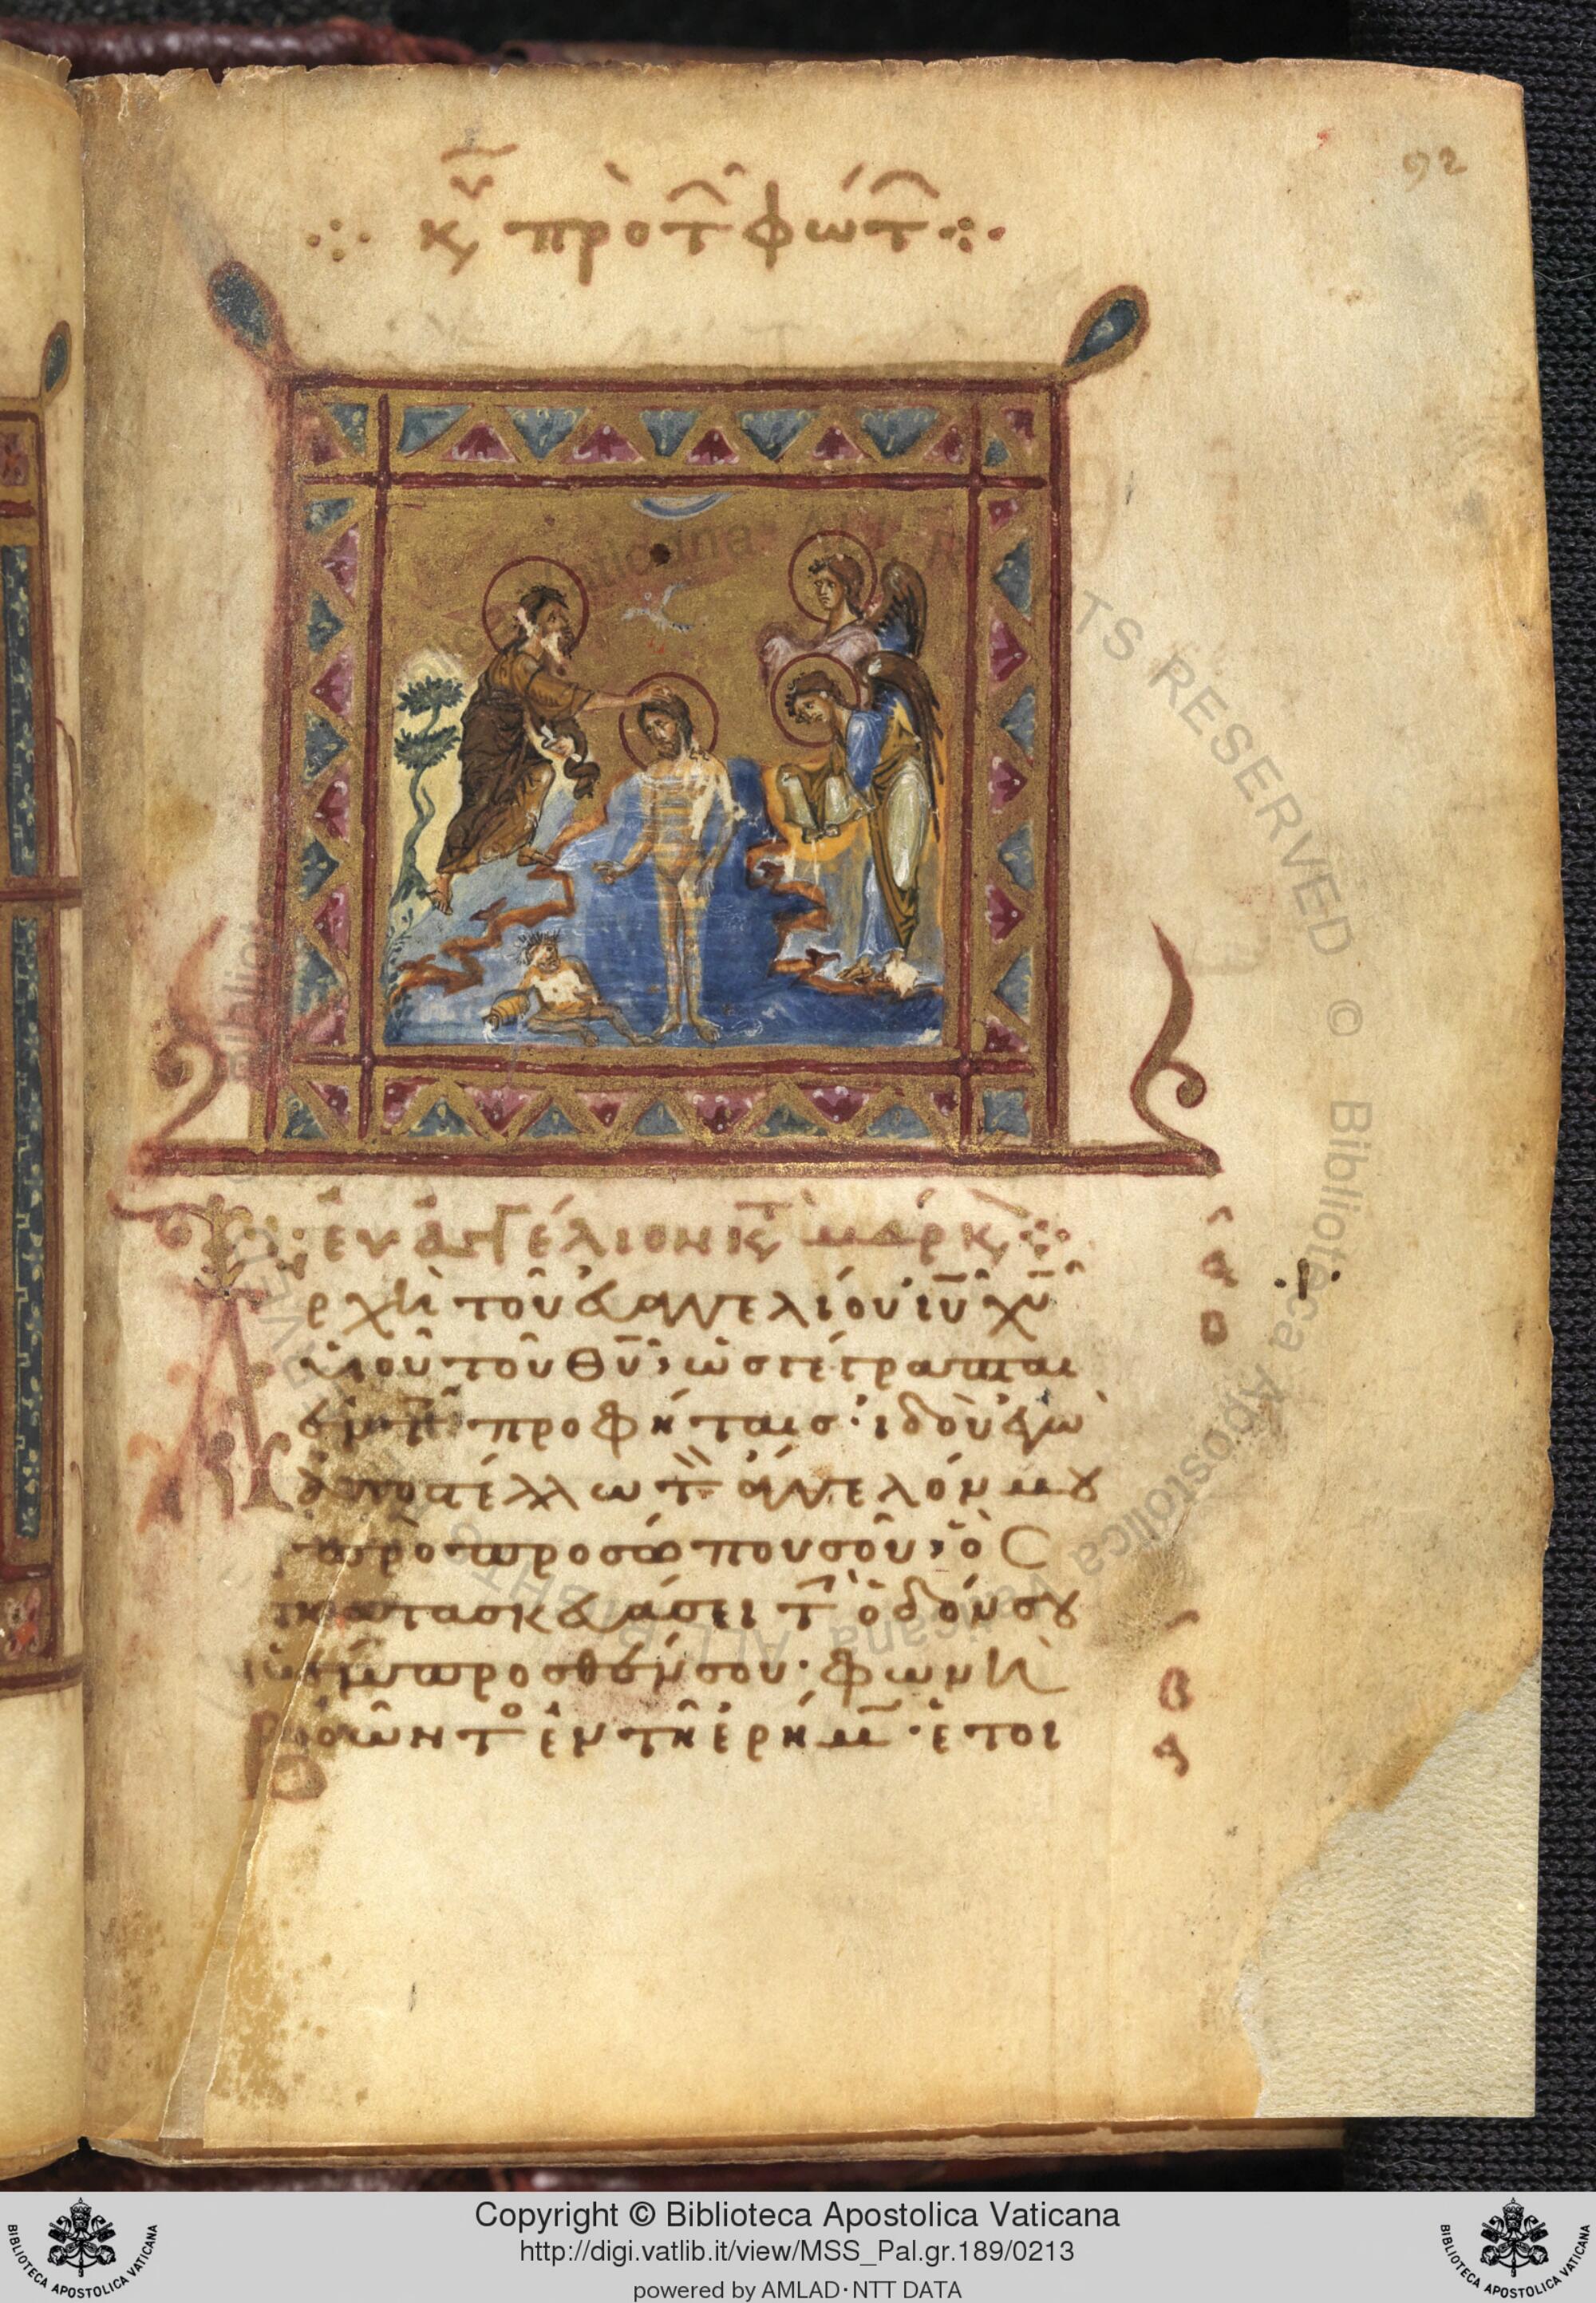 92
κυ πρὸ τ φώτ
εὐαγγέλιον κτ μάρκ
Ἀρχὴ τοῦ εὐαγγελίου ιυ χυ
υἱοῦ τοῦ θυ, ὡς γέγραπται
ἐν τ προφήταις· ἰδοὺ ἐγὼ
ἀποστέλλω τ ἄγγελόν μου
πρὸ προσώπου σοῦ, ὃς
κατασκευάσει τ ὁδόν σου
ἔμπροσθέν σου· φωνὴ
βοῶντο ἐν τῆ ἐρήμ· ἑτοι
Copyright © Biblioteca Apostolica Vaticana
http://digi.vatlib.it/view/MSS_Pal.gr.189/0213
powered by AMLAD·NTT DATA
BIBLIOTECA APOSTOLICA VATICANA
BIBLIOTECA APOSTOLICA VATICANA